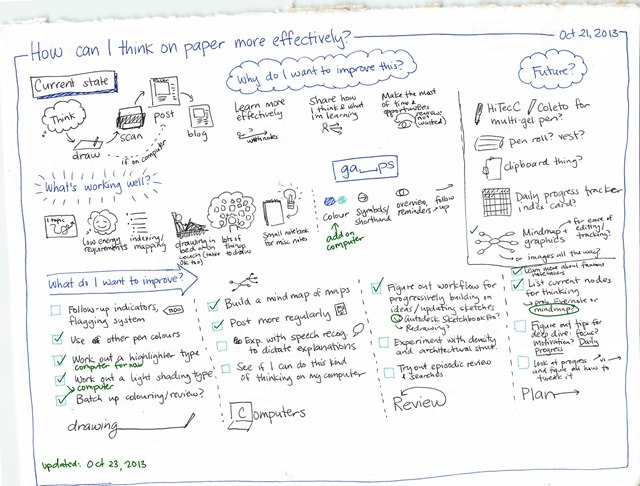 How can I think on paper more effectively?
Oct 21, 2013
Current state
Think
draw
scan
post
blog
if on computer
Why do I want to improve this?
Learn more
effectively
Share how
I think & what
I'm learning
Make the most
of time &
opportunities
Future?
HiTecC / Coleto for
multi-gel pen?
pen roll? vest?
clipboard thing?
Daily progress tracker
index card?
Mindmap +
graphics
for ease of
editing/
tracking?
or images all the way?
What's working well?
1 topic
Low energy
requirements
indexing/
mapping
drawing in
bed or on
couch
lots of
things
to draw
Small notebook
for misc notes
gaps
colour
add on
computer
symbols/
shorthand
overview,
reminders
follow
up
What do I want to improve?
Follow-up indicators,
flagging system
Use other pen colours
Work out a highlighter type
computer for now
Work out a light shading type
computer
Batch up colouring/review?
drawing
Build a mind map of maps
Post more regularly
Exp. with speech recog.
to dictate explanations
See if I can do this kind
of thinking on my computer
Computers
Figure out workflow for
progressively building on
ideas/updating sketches
Autodesk Sketchbook Pro?
Redrawing?
Experiment with density
and architectural struct.
Try out episodic review
& searches
Review
Learn more about famous
notetakers
List current nodes
for thinking
Evernote or
mindmap?
Figure out tips for
deep dive: focus?
Motivation? Daily
Progress
Look at progress
and figure out how to
tweak it
Plan
updated: Oct 23, 2013